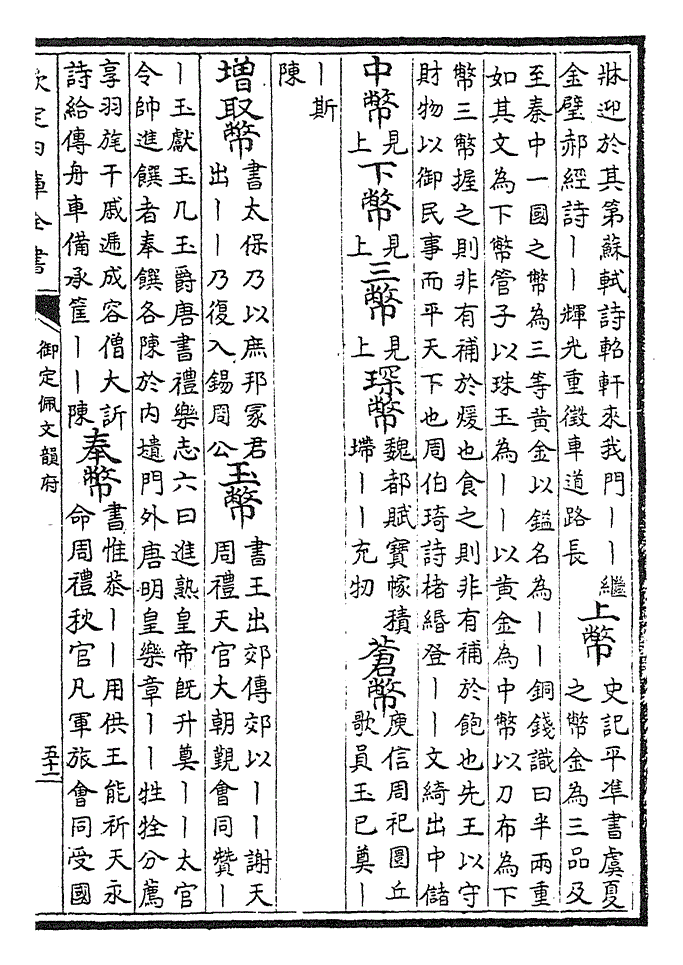 牀迎於其第蘇軾詩軺軒來我門丨丨繼
金璧郝經詩丨丨輝光重徵車道路長
上幣
史記平準書虞夏
之幣金為三品及
至秦中一國之幣為三等黃金以鎰名為丨丨銅錢識曰半兩重
如其文為下幣管子以珠玉為丨丨以黃金為中幣以刀布為下
幣三幣握之則非有補於煖也食之則非有補於飽也先王以守
財物以御民事而平天下也周伯琦詩楮緡登丨丨文綺出中儲
中幣
見
上
下幣
見
上
三幣
見
上
琛幣
魏都賦寶幏積
墆丨丨充牣
蒼幣
庾信周祀圜丘
歌員玉已奠丨
丨斯
陳
增取幣
書太保乃以庶邦冢君
出丨丨乃復入錫周公
玉幣
書王出郊傳郊以丨丨謝天
周禮天官大朝覲會同贊丨
丨玉獻玉几玉爵唐書禮樂志六曰進熟皇帝既升奠丨丨太官
令帥進饌者奉饌各陳於内壝門外唐明皇樂章丨丨牲牷分薦
享羽旄干戚遞成容僧大訢
詩給傳舟車備承筐丨丨陳
奉幣
書惟恭丨丨用供王能祈天永
命周禮秋官凡軍旅會同受國
欽定四庫全書
御定佩文韻府
五十二